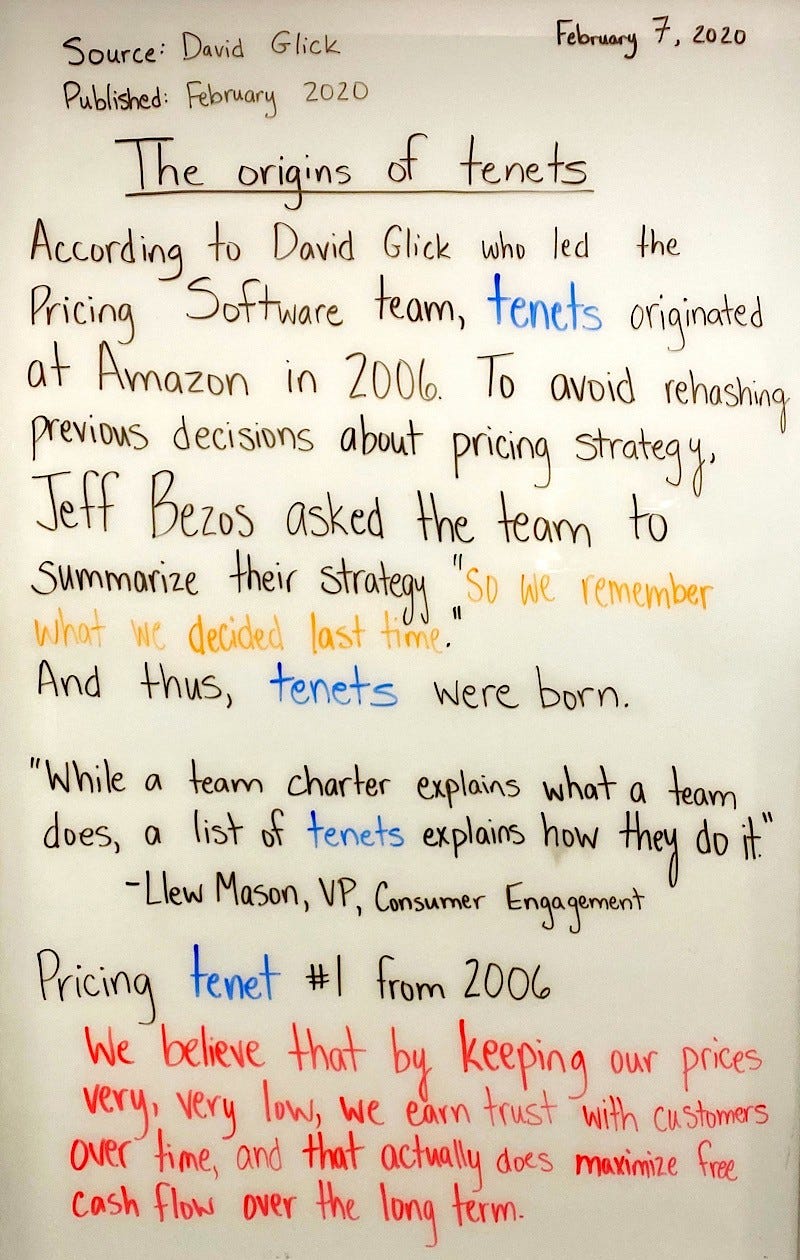 February 7, 2020
Source: David Glick
Published: February 2020
The origins of tenets
According to David Glick who led the
Pricing Software team, tenets originated
at Amazon in 2006. To avoid rehashing
previous decisions about pricing strategy,
Jeff Bezos asked the team to
summarize their strategy "So we remember
what we decided last time."
And thus, tenets were born.
"While a team charter explains what a team
does, a list of tenets explains how they do it."
-Llew Mason, VP, Consumer Engagement
Pricing tenet #1 from 2006
We believe that by keeping our prices
very, very low, we earn trust with customers
over time, and that actually does maximize free
cash flow over the long term.